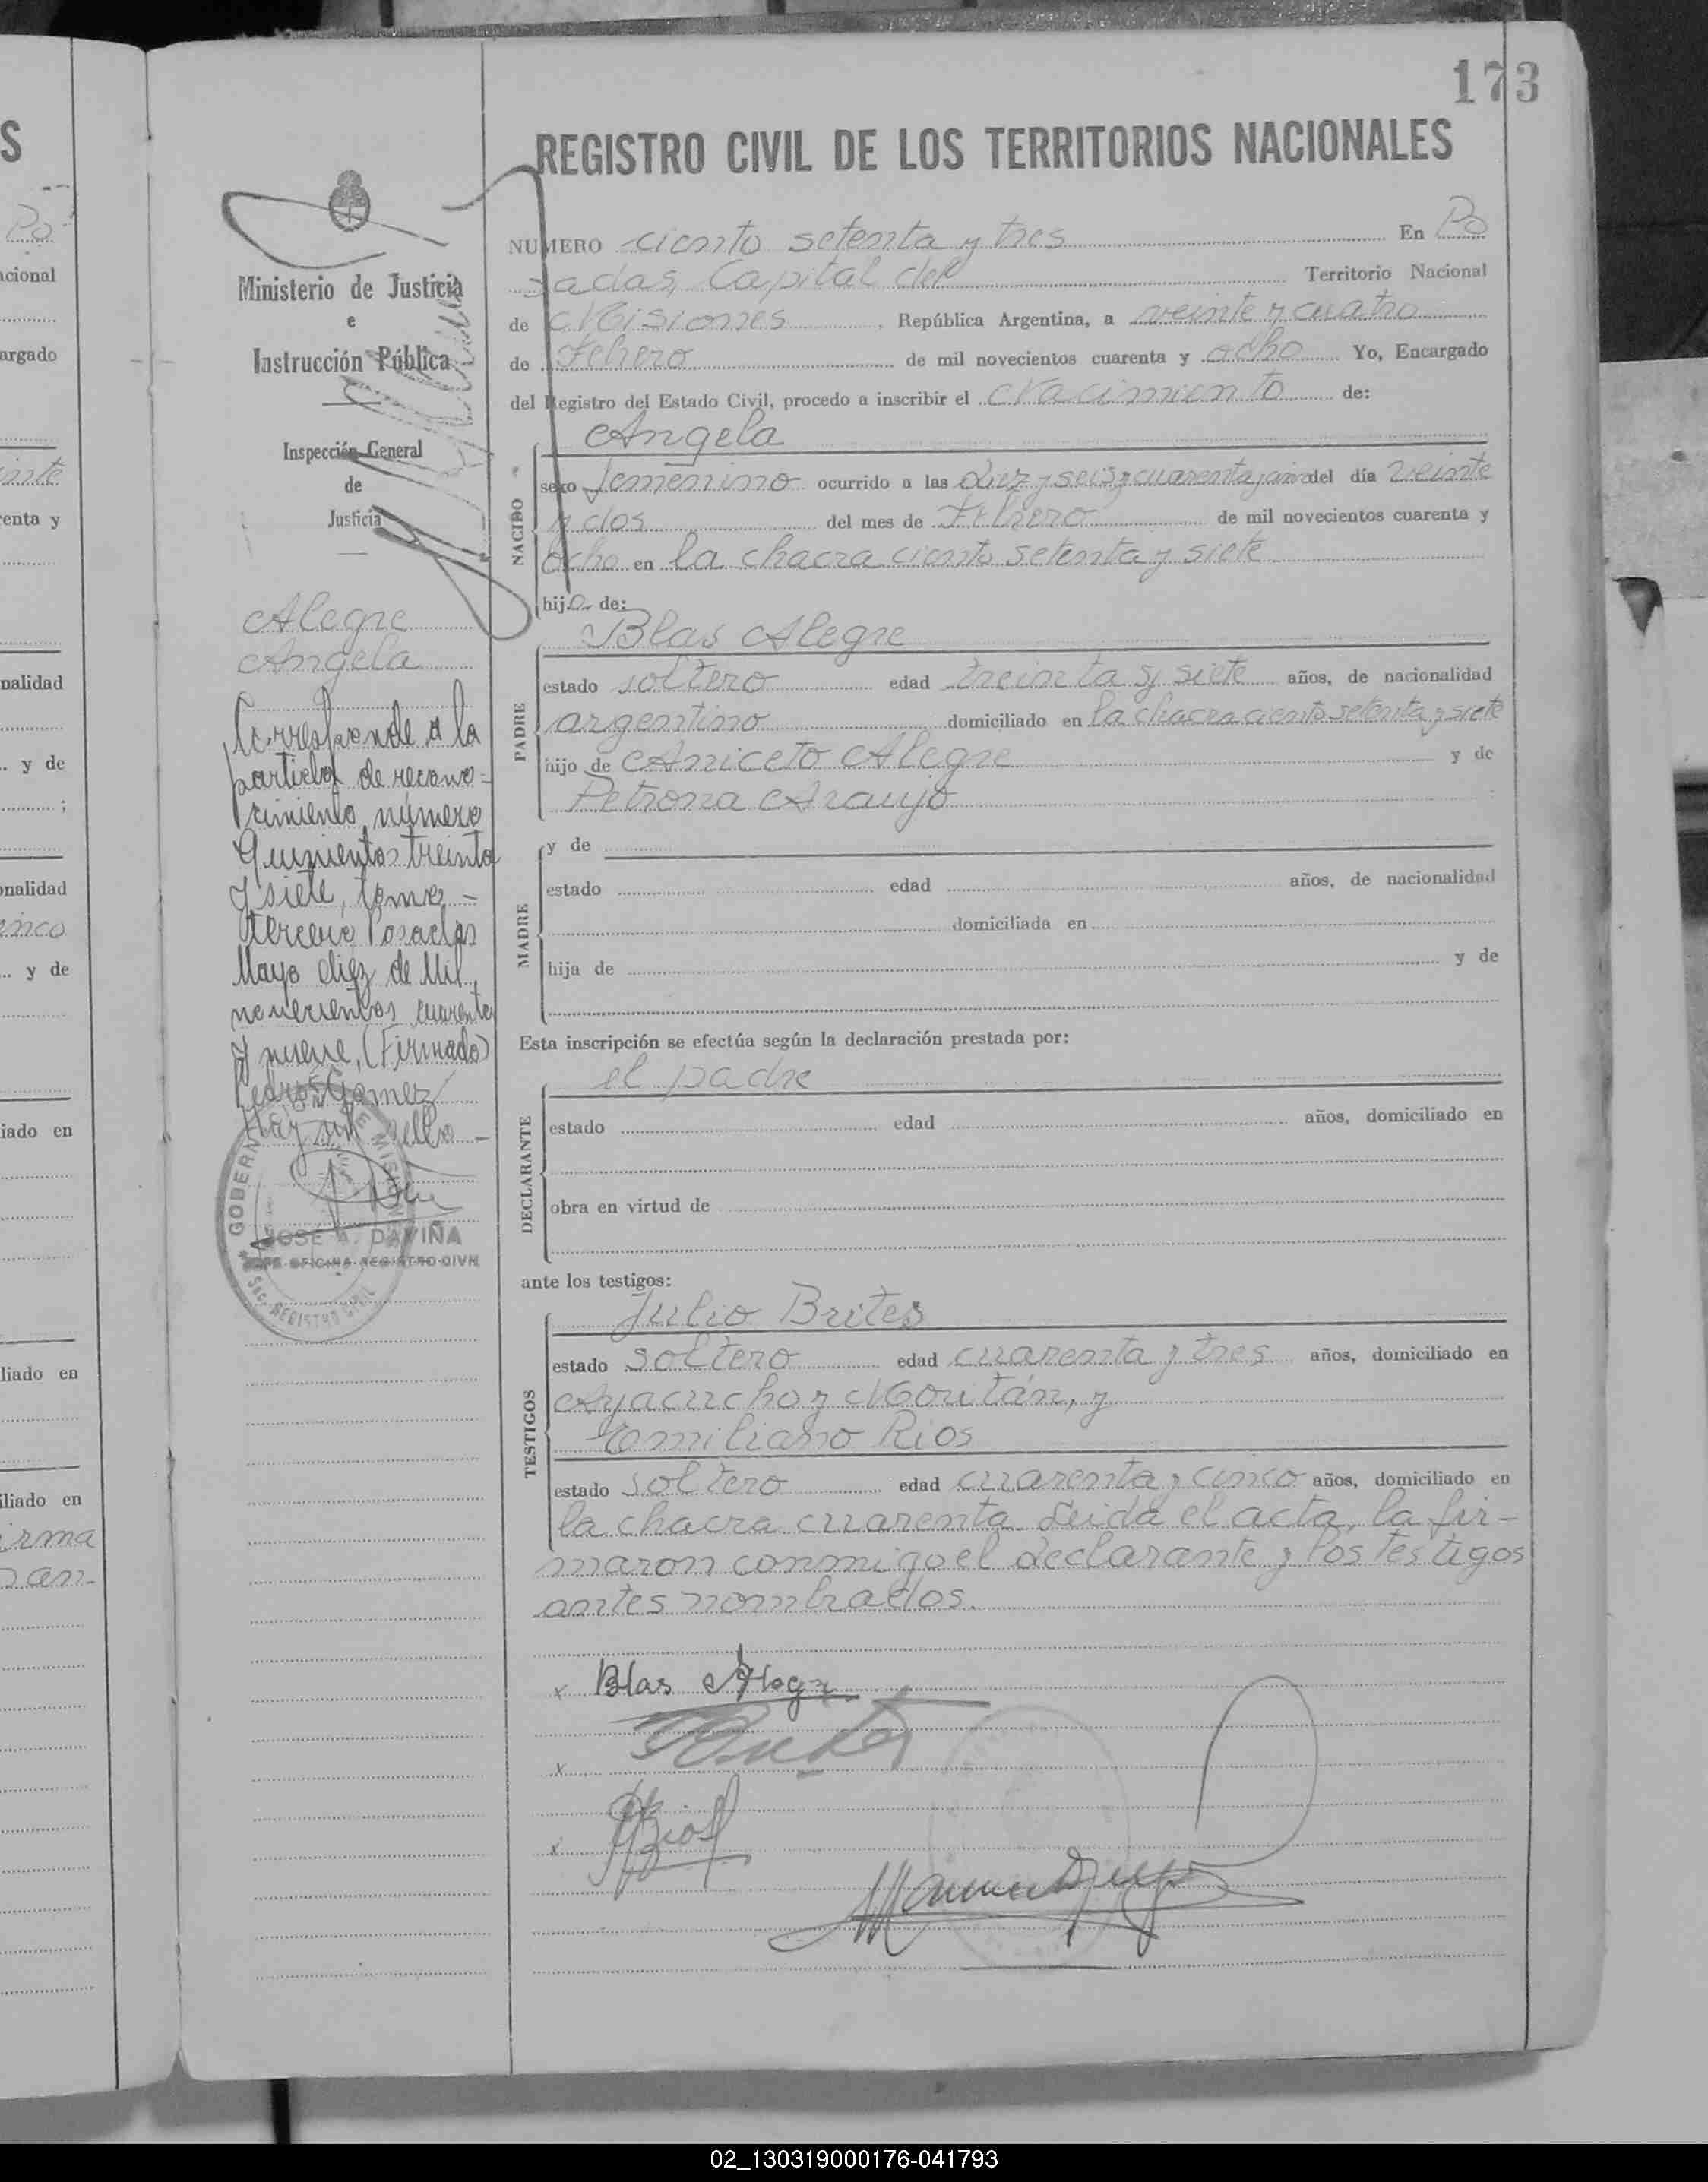 173
REGISTRO CIVIL DE LOS TERRITORIOS NACIONALES
NUMERO ciento setenta y tres En Po
sadas, Capital del Territorio Nacional
de Misiones, República Argentina, a veinte y cuatro
de Febrero de mil novecientos cuarenta y ocho Yo, Encargado
del Registro del Estado Civil, procedo a inscribir el Nacimiento de:
Angela
NACIDO
sexo femenino ocurrido a las diez y seis y cuarenta del día veinte
y dos del mes de Febrero de mil novecientos cuarenta y
ocho en la chacra ciento setenta y siete
hija de:
Blas Alegre
PADRE
estado soltero edad treinta y siete años, de nacionalidad
argentino domiciliado en la chacra ciento setenta y siete
hijo de Aniceto Alegre y de
Petrona Araujo
MADRE
y de
estado edad años, de nacionalidad
domiciliada en
hija de y de
Esta inscripción se efectúa según la declaración prestada por:
el padre
DECLARANTE
estado edad años, domiciliado en
obra en virtud de
ante los testigos:
Julio Brites
TESTIGOS
estado soltero edad cuarenta y tres años, domiciliado en
Ayacucho y Moritán, y
Emiliano Rios
estado soltero edad cuarenta y cinco años, domiciliado en
la chacra cuarenta. Leida el acta, la fir-
maron conmigo el declarante y los testigos
antes nombrados.
x Blas Alegre
x
x
Ministerio de Justicia
e
Instrucción Pública
Inspección General
de
Justicia
Alegre
Angela
Corresponde a la
partida de recono-
cimiento número
Quinientos treinta
y siete, tomo -
tercero Posadas
Mayo diez de Mil
novecientos cuarenta
y nueve, (Firmado)
Pedro Gomez
Hay un sello -
GOBERNACION DE MISIONES
JOSE A. DAVIÑA
JEFE OFICINA REGISTRO CIVIL
SEC. REGISTRO CIVIL
S
Po
acional
argado
inte
renta y
nalidad
. y de
;
onalidad
inco
.. y de
iado en
liado en
iliado en
irma
nan-
02_130319000176-041793